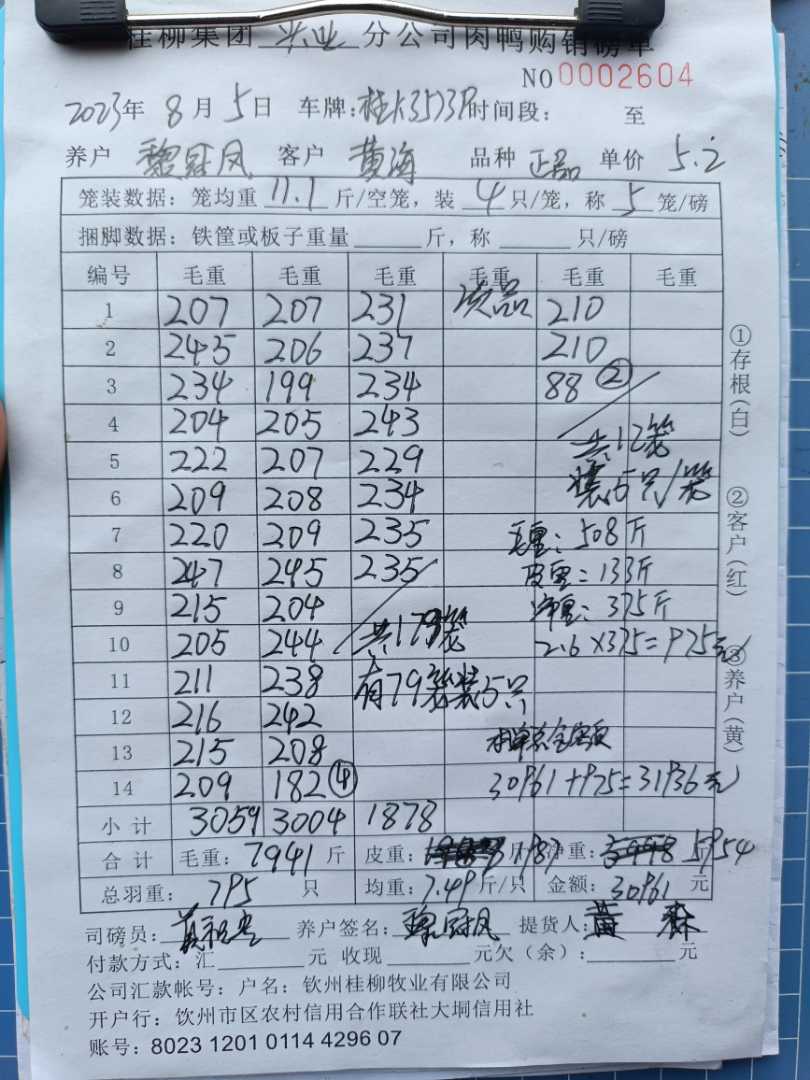 桂柳集团 兴业 分公司肉鸭购销磅单
NO 0002604
2023年 8 月 5 日 车牌: 时间段: 至
养户 魏冠凤 客户 黄海 品种 正品 单价 5.2
笼装数据: 笼均重 11.1 斤/空笼, 装 4 只/笼, 称 5 笼/磅
捆脚数据: 铁筐或板子重量 斤, 称 只/磅
编号 毛重 毛重 毛重 毛重 毛重 毛重
1 207 207 231 次品 210
2 245 206 237 210
3 234 199 234 88 ②
4 204 205 243
共12笼
5 222 207 229
装5只/笼
6 209 208 234
7 220 209 235 毛重: 508斤
8 247 245 235 皮重: 133斤
9 215 204 净重: 375斤
10 205 244 共179笼 2.6×375=975元
11 211 238 有79笼装5只
12 216 242
13 215 208 本单总金额
14 209 182 ④ 30961+975=31936元
小计 3059 3004 1878
合计 毛重: 7941 斤 皮重: 1987 斤 净重: 5954
总羽重: 795 只 均重: 7.49斤/只 金额: 30961 元
司磅员: 养户签名: 魏冠凤 提货人: 黄
付款方式: 汇 元 收现 元欠(余): 元
公司汇款帐号: 户名: 钦州桂柳牧业有限公司
开户行: 钦州市区农村信用合作联社大垌信用社
账号: 8023 1201 0114 4296 07
①存根(白)
②客户(红)
③养户(黄)